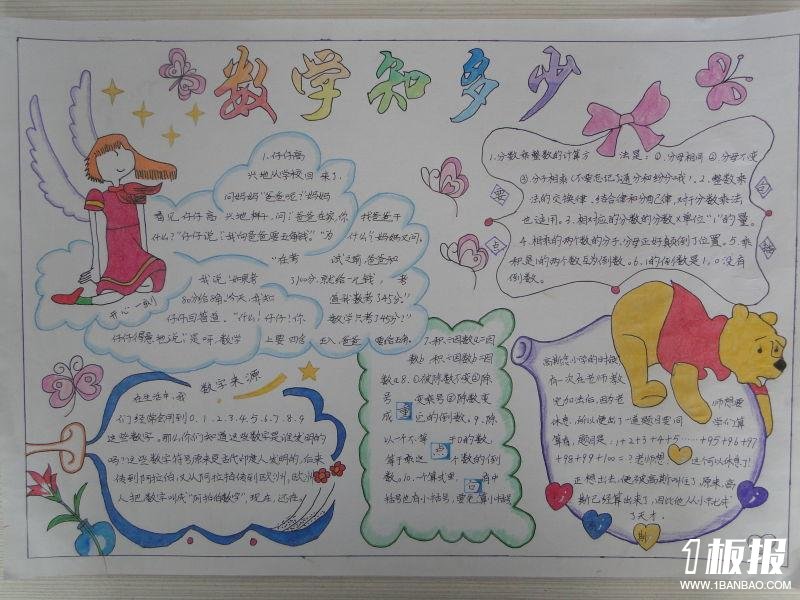 数学知多少
1.仔仔高
兴地从学校回来了,
问妈妈“爸爸呢?”妈妈
看见仔仔高兴地样子,问:“爸爸在家,你找爸爸干
什么?”仔仔说:“我向爸爸要五角钱。”“为什么?”妈妈又问。
“在考试之前,爸爸和
我说,‘如果考100分,就给一元钱,考
80分给5角’今天,我知道我数考了45分”
仔仔回答道,“什么!仔仔!你数学只考了45分?”
仔仔得意地说“是呀,数学上要四舍五入,爸爸
开心一刻
1.分数乘整数的计算方法是:①.分母相同②.分母不变
③.分子相乘(不要忘记了通分和约分哦!)2.整数乘
法的交换律、结合律和分配律,对于分数乘法
也适用。3.相对应的分数的分数×单位“1”的量。
4.相乘的两个数的分子,分母正好颠倒了位置。5.乘
积是1的两个数互为倒数。6.1的倒数是1。0没有
倒数。
数字来源
在生活中,我
们经常会用到0.1.2.3.4.5.6.7.8.9
这些数字。那么你们知道这些数字是谁发明的
吗?这些数字符号原来是古代印度人发明的,后来
传到阿拉伯,又从阿拉伯传到欧洲,欧洲
人把数字叫成“阿拉伯数字”,现在,还在
7.积÷因数a=因
数b 积÷因数b=因
数a 8.①被除数不变②除
号变乘号③除数变
成它的倒数。9.除
以一个不等于0的数,
等于乘这个数的倒
数。10.一个算式里,
括号也有小括号,要先算小括
重
点
高斯念小学的时候
有一次在老师教
完加法后,因为老师想要
休息,所以便出了一道题目要同学们算
算看,题目是:1+2+3+4+5……+95+96+97
+98+99+100=?老师想,这个可以休息了!
正想出去,便被高斯叫住了,原来,高
斯已经算出来了,因此他从小书七术
了天才.
1板报
WWW.1BANBAO.COM